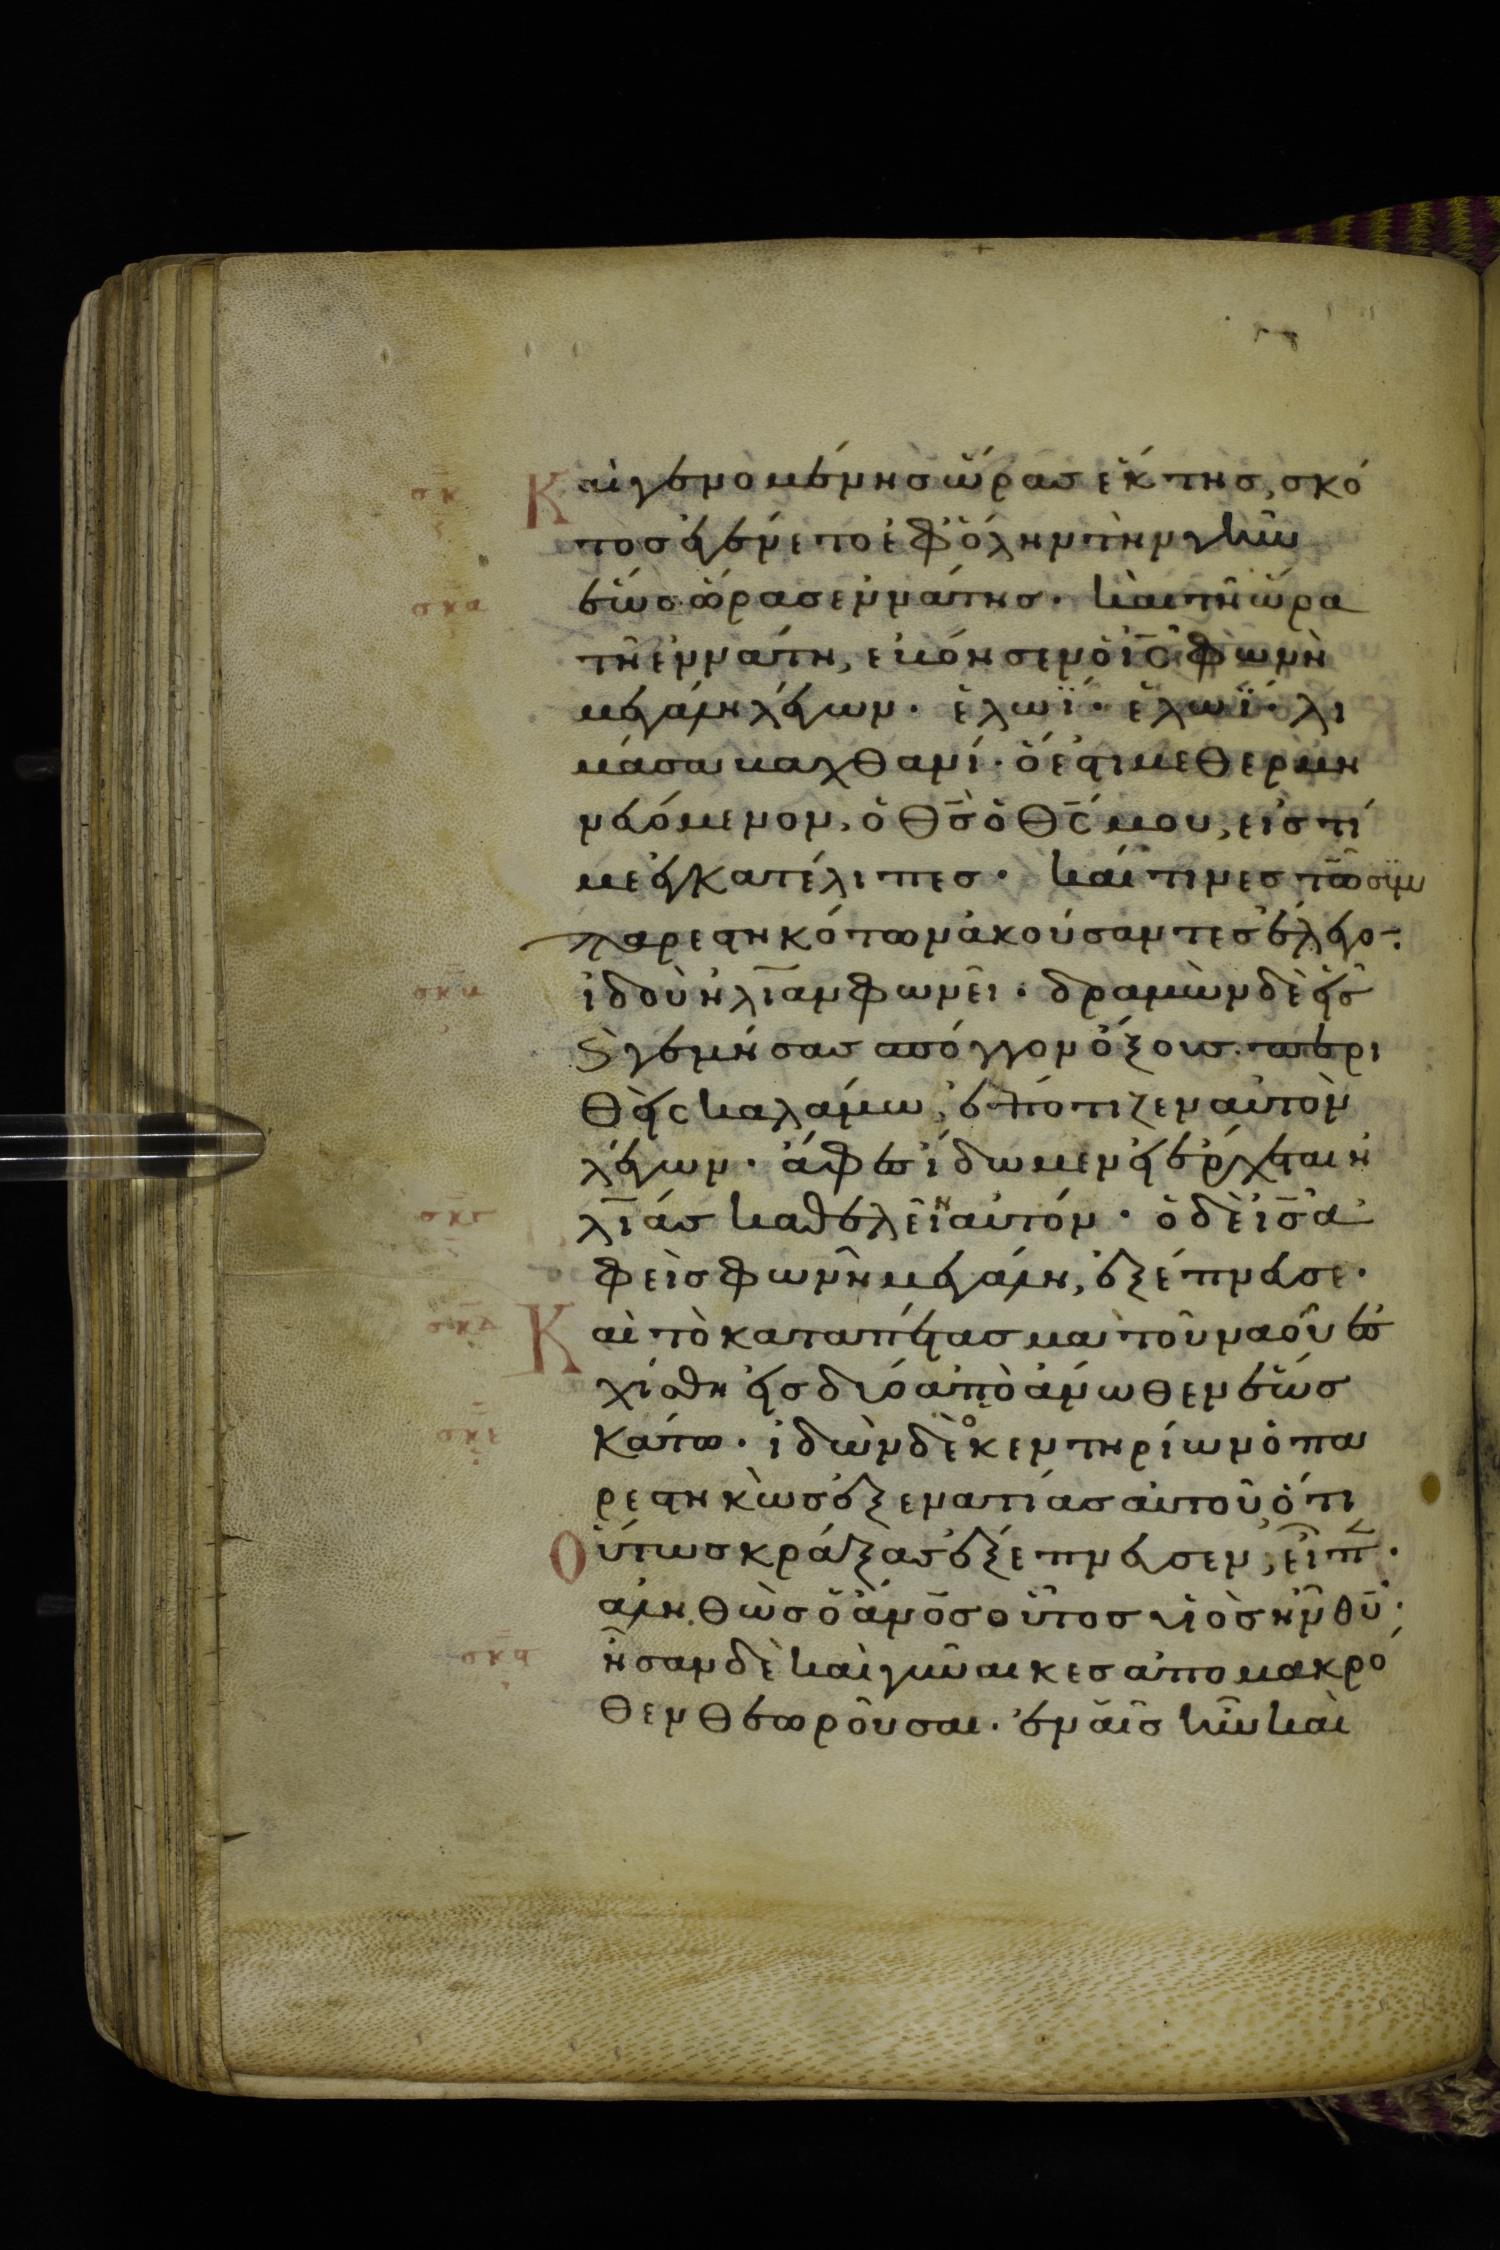 σκ Καὶ γενομένησ ὥρασ ἕκτησ, σκό
τοσ ἐγένετο ἐφ ὅλην τὴν γῆν
σκα ἕωσ ὥρασ ἐννάτησ· καὶ τῆ ὥρα
τῆ ἐννάτη, ἐβόησεν ὁ ι̅σ̅ φωνῆ
μεγάλη λέγων· ἐλωΐ· ἐλωΐ· λι
μάσαβαχθανί· ὅ ἐστι μεθερμη
νευόμενον, ὁ θ̅σ̅ ὁ θ̅σ̅ μου, εἰσ τί
με ἐγκατέλιπεσ· καί τινεσ τῶν
παρεστηκότων ἀκούσαντεσ ἔλεγον·
σκβ ἰδοὺ ἠλίαν φωνεῖ· δραμὼν δὲ εἷσ
ϗ γεμίσασ σπόγγον ὄξουσ. περι
θεὶσ καλάμω, ἐπότιζεν αὐτὸν
λέγων· ἄφετε ἴδωμεν εἰ ἔρχεται ἠ
σκγ λίασ καθελεῖν αὐτόν· ὁ δὲ ι̅σ̅ ἀ
φεὶσ φωνὴν μεγάλην, ἐξέπνευσε·
σκδ Καὶ τὸ καταπέτασμα τοῦ ναοῦ ἐσ
χίσθη εἰσ δύο ἀπὸ ἄνωθεν ἕωσ
σκε κάτω· ἰδὼν δὲ ὁ κεντηρίων ὁ πα
ρεστηκὼσ ἐξεναντίασ αὐτοῦ ὅτι
Οὕτωσ κράξασ ἐξέπνευσεν, εἶπ̅·
ἀληθῶσ ὁ ἄν̅ο̅σ οὗτοσ υἱὸσ ἦν θ̅υ̅·
σκϛ ἦσαν δὲ καὶ γυναῖκεσ ἀπο μακρό
θεν θεωροῦσαι· ἐν αἷσ ἦν καὶ